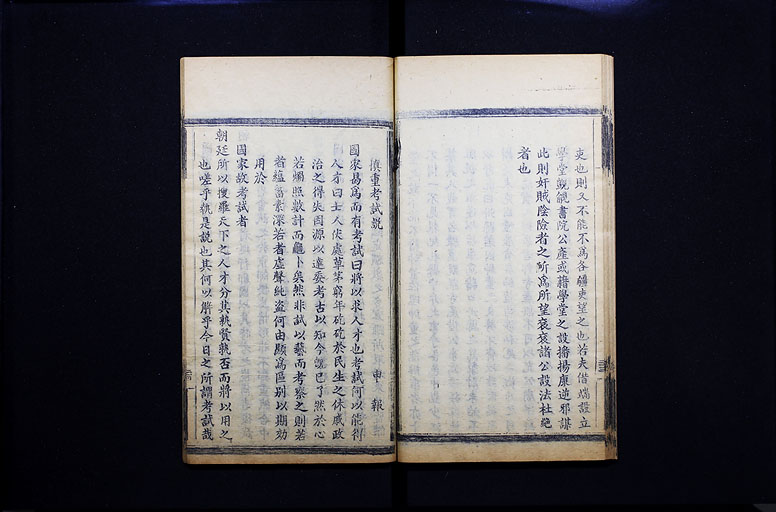 吏也則又不能不為各疆吏望之也若夫借端設立
學堂覬覦書院公產或藉學堂之設播揚康逆邪謀
此則奸賊陰險者之所為所望袞袞諸公設法杜絕
者也
慎重考試說
申報
國家曷為而有考試曰將以求人才也考試何以能得
人才曰士人伏處草茅窮年矻矻於民生之休戚政
治之得失因源以達委考古以知今既已了然於心
若燭照數計而龜卜矣然非試以藝而考察之則若
者蘊蓄素深若者虛聲純盜何由顯為區別以期効
用於
國家故考試者
朝廷所以搜羅天下之人才分其孰賢孰否而將以用之
也嗟乎孰是說也其何以解乎今日之所謂考試哉